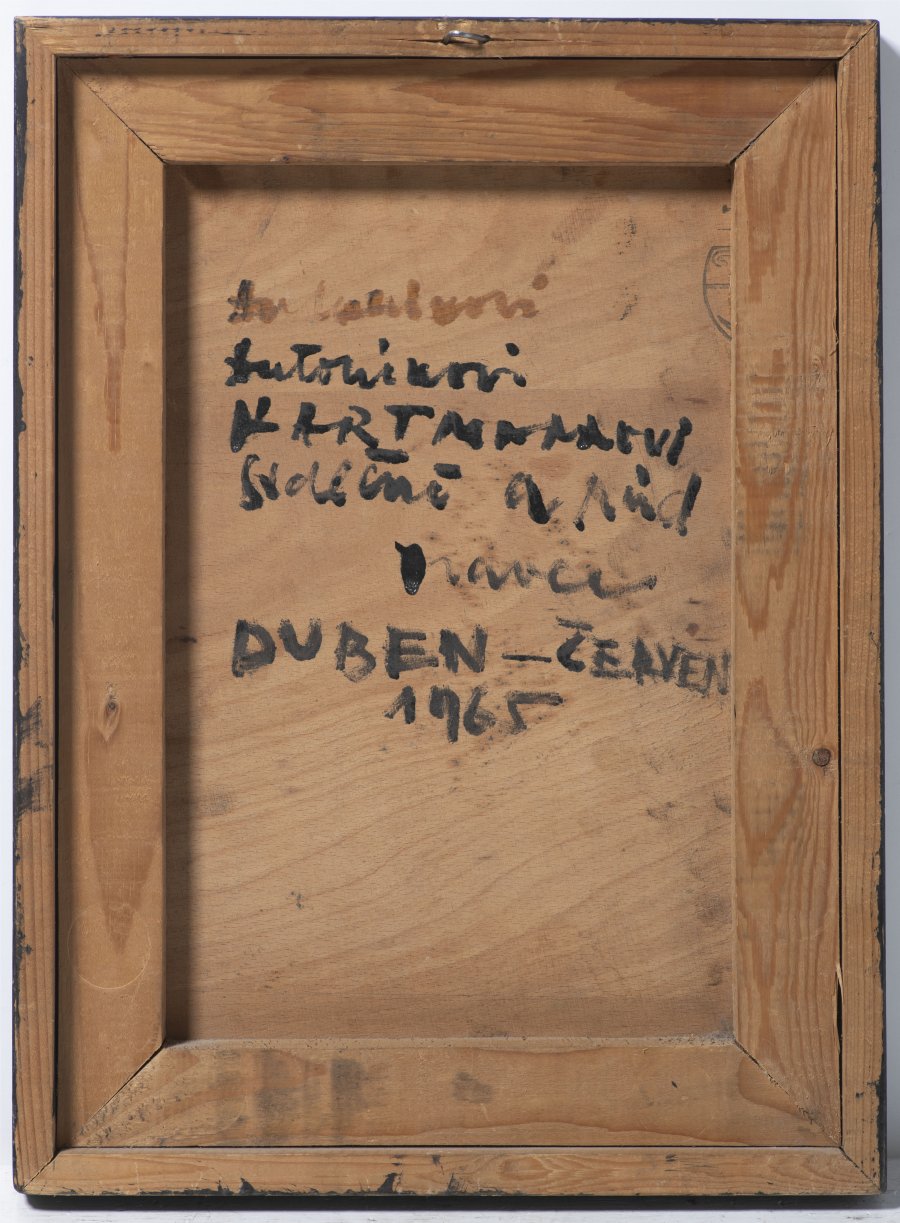 Antonínovi
HARTMANNOVI
Srdečně a rád
DUBEN – ČERVEN
1965